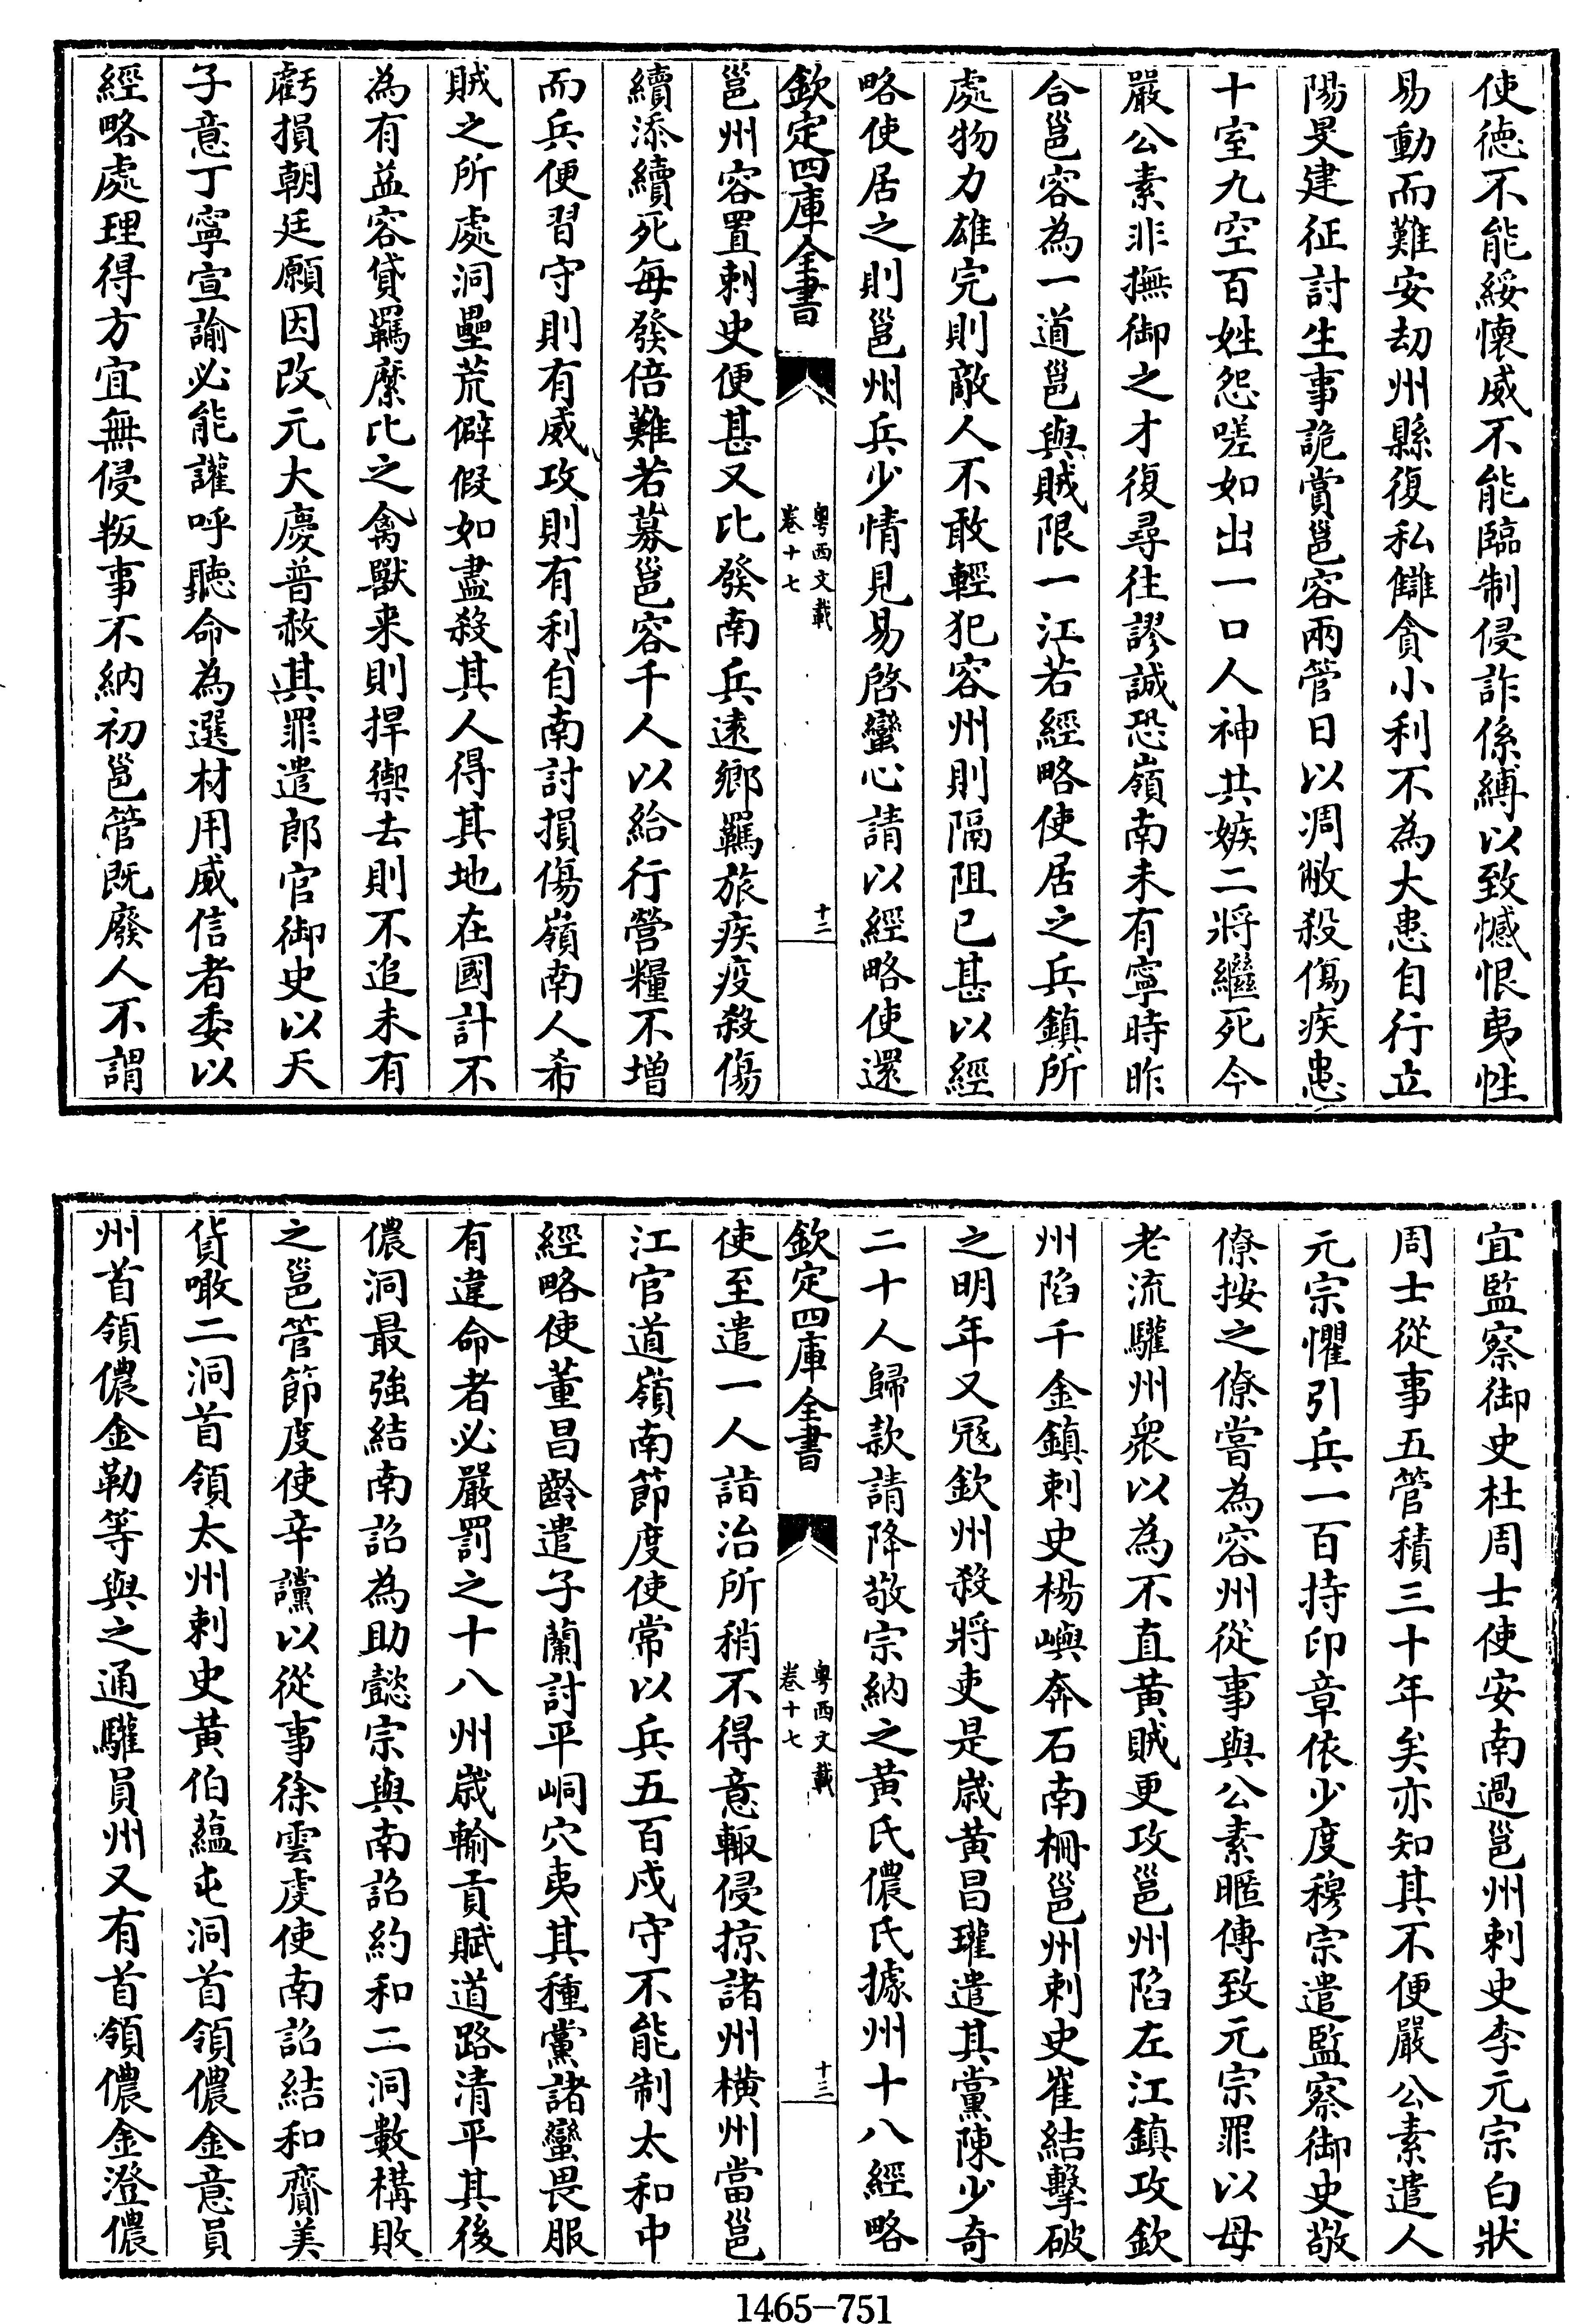 使德不能綏懷威不能臨制侵詐係縛以致憾恨夷性
易動而難安刼州縣復私讎貪小利不為大患自行立
陽旻建征討生事詭賞邕容兩管日以凋敝殺傷疾患
十室九空百姓怨嗟如出一口人神共嫉二將繼死今
嚴公素非撫御之才復尋往謬誠恐嶺南未有寧時昨
合邕容為一道邕與賊限一江若經略使居之兵鎮所
處物力雄完則敵人不敢輕犯容州則隔阻已甚以經
略使居之則邕州兵少情見易啓蠻心請以經略使還
欽定四庫全書
粵西文載
卷十七
十二
邕州容置刺史便甚又比發南兵逺鄉羈旅疾疫殺傷
續添續死每發倍難若募邕容千人以給行營糧不增
而兵便習守則有威攻則有利自南討損傷嶺南人希
賊之所處洞壘荒僻假如盡殺其人得其地在國計不
為有益容貸羈縻比之禽獸来則捍禦去則不追未有
虧損朝廷願因改元大慶普赦其罪遣郎官御史以天
子意丁寧宣諭必能讙呼聽命為選材用威信者委以
經略處理得方宜無侵叛事不納初邕管既廢人不謂
宜監察御史杜周士使安南過邕州刺史李元宗白狀
周士從事五管積三十年矣亦知其不便嚴公素遣人
元宗懼引兵一百持印章依少度穆宗遣監察御史敬
僚按之僚嘗為容州從事與公素暱傅致元宗罪以母
老流驩州衆以為不直黄賊更攻邕州陷左江鎮攻欽
州陷千金鎮刺史楊嶼奔石南柵邕州刺史崔結擊破
之明年又寇欽州殺將吏是歲黄昌瓘遣其黨陳少奇
二十人歸款請降敬宗納之黄氏儂氏據州十八經略
欽定四庫全書
粵西文載
卷十七
十三
使至遣一人詣治所稍不得意輙侵掠諸州橫州當邕
江官道嶺南節度使常以兵五百戍守不能制太和中
經略使董昌齡遣子蘭討平峒穴夷其種黨諸蠻畏服
有違命者必嚴罰之十八州歲輸貢賦道路清平其後
儂洞最強結南詔為助懿宗與南詔約和二洞數構敗
之邕管節度使辛讜以從事徐雲虔使南詔結和齎美
貨啖二洞首領太州刺史黄伯蘊屯洞首領儂金意員
州首領儂金勒等與之通驩員州又有首領儂金澄儂
1465-751